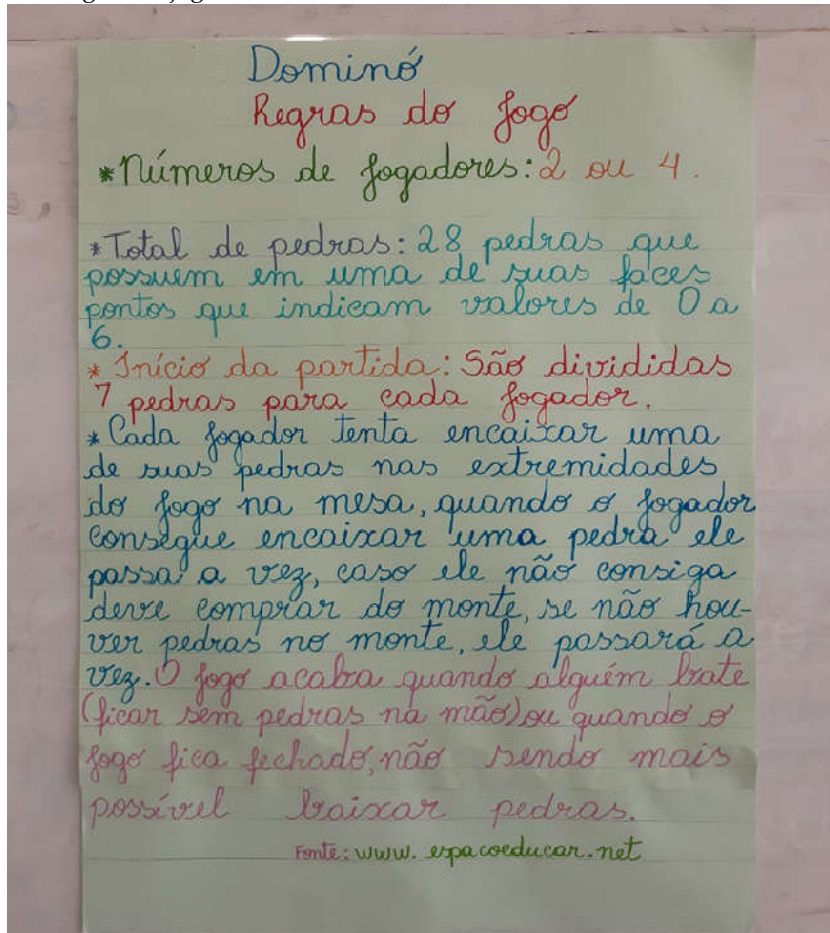 Dominó
Regras do Jogo
*Números de jogadores: 2 ou 4.
*Total de pedras: 28 pedras que
possuem em uma de suas faces
pontos que indicam valores de 0 a
6.
* Início da partida: São divididas
7 pedras para cada jogador.
* Cada jogador tenta encaixar uma
de suas pedras nas extremidades
do jogo na mesa, quando o jogador
consegue encaixar uma pedra ele
passa a vez, caso ele não consiga
deve comprar do monte, se não hou-
ver pedras no monte, ele passará a
vez. O jogo acaba quando alguém bate
(ficar sem pedras na mão) ou quando o
jogo fica fechado, não sendo mais
possível baixar pedras.
Fonte: www.espacoeducar.net